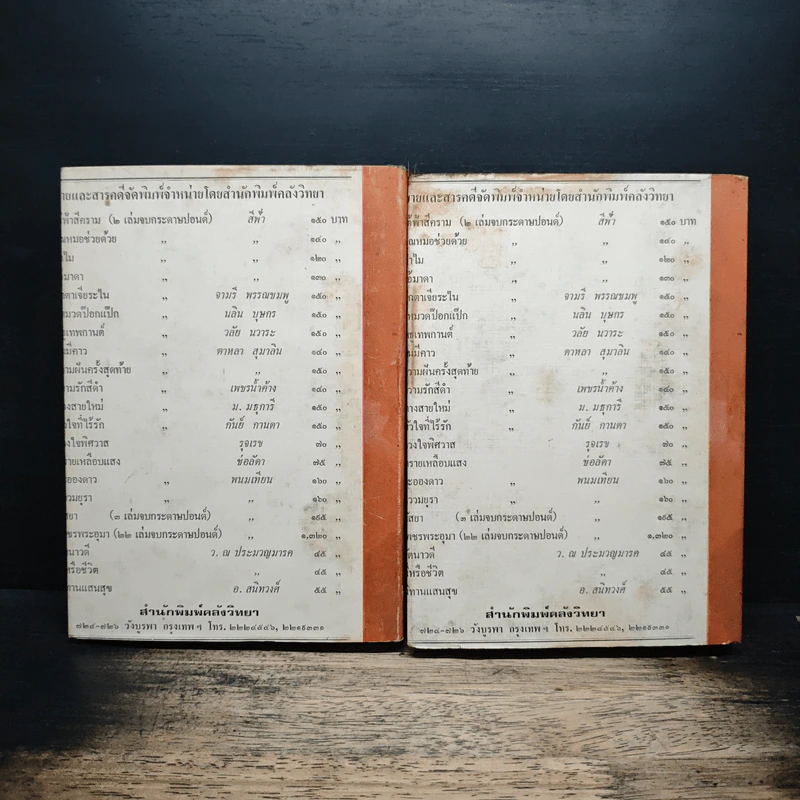 ายและสารคดีจัดพิมพ์จำหน่ายโดยสำนักพิมพ์คลังวิทยา
ฟ้าสีคราม (๒ เล่มจบกระดาษปอนด์) สีฟ้า ๑๕๐ บาท
ณหมอช่วยด้วย ,, ,, ๑๔๐ ,,
าไม ,, ,, ๑๒๐ ,,
มาดา ,, ,, ๑๓๐ ,,
กตาเจียระไน ,, จามรี พรรณชมพู ๑๕๐ ,,
หมวดป๊อกแป๊ก ,, นลิน บุษกร ๑๕๐ ,,
เทพกานต์ ,, วลัย นวาระ ๑๕๐ ,,
มีคาว ,, ดาหลา สุมาลิน ๑๔๐ ,,
ามฝันครั้งสุดท้าย ,, ,, ๑๕๐ ,,
ามรักสีดำ ,, เพชรน้ำค้าง ๑๔๐ ,,
างสายใหม่ ,, ม. มธุการี ๑๕๐ ,,
ใจที่ไร้รัก ,, กันย์ กานดา ๑๕๐ ,,
วงใจพิศวาส รุจเรข ๗๐ ,,
รายเหลือบแสง ช่อลัดา ๗๕ ,,
ะอองดาว ,, พนมเทียน ๑๖๐ ,,
ววมยุรา ,, ,, ๑๖๐ ,,
สยา (๓ เล่มจบกระดาษปอนด์) ,, ๑๙๕ ,,
พชรพระอุมา (๒๒ เล่มจบกระดาษปอนด์) ,, ๑,๓๒๐ ,,
ตนาวดี ว. ณ ประมวญมารค ๔๕ ,,
หรือชีวิต ,, ๔๕ ,,
ทานแสนสุข อ. สนิทวงศ์ ๕๕ ,,
สำนักพิมพ์คลังวิทยา
๗๒๔-๗๒๖ วังบูรพา กรุงเทพ ฯ โทร. ๒๒๒๔๕๔๖, ๒๒๑๙๓๓๑
ายและสารคดีจัดพิมพ์จำหน่ายโดยสำนักพิมพ์คลังวิทยา
ฟ้าสีคราม (๒ เล่มจบกระดาษปอนด์) สีฟ้า ๑๕๐ บาท
ณหมอช่วยด้วย ,, ,, ๑๔๐ ,,
าไม ,, ,, ๑๒๐ ,,
มาดา ,, ,, ๑๓๐ ,,
กตาเจียระไน ,, จามรี พรรณชมพู ๑๕๐ ,,
หมวดป๊อกแป๊ก ,, นลิน บุษกร ๑๕๐ ,,
เทพกานต์ ,, วลัย นวาระ ๑๕๐ ,,
ไม่มีคาว ,, ดาหลา สุมาลิน ๑๔๐ ,,
วามฝันครั้งสุดท้าย ,, ,, ๑๕๐ ,,
วามรักสีดำ ,, เพชรน้ำค้าง ๑๔๐ ,,
างสายใหม่ ,, ม. มธุการี ๑๕๐ ,,
ัวใจที่ไร้รัก ,, กันย์ กานดา ๑๕๐ ,,
วงใจพิศวาส รุจเรข ๗๐ ,,
รายเหลือบแสง ช่อลัดา ๗๕ ,,
ะอองดาว ,, พนมเทียน ๑๖๐ ,,
ววมยุรา ,, ,, ๑๖๐ ,,
สยา (๓ เล่มจบกระดาษปอนด์) ,, ๑๙๕ ,,
พชรพระอุมา (๒๒ เล่มจบกระดาษปอนด์) ,, ๑,๓๒๐ ,,
ตนาวดี ว. ณ ประมวญมารค ๔๕ ,,
หรือชีวิต ,, ๔๕ ,,
ทานแสนสุข อ. สนิทวงศ์ ๕๕ ,,
สำนักพิมพ์คลังวิทยา
๗๒๔-๗๒๖ วังบูรพา กรุงเทพ ฯ โทร. ๒๒๒๔๕๔๖, ๒๒๑๙๓๓๑